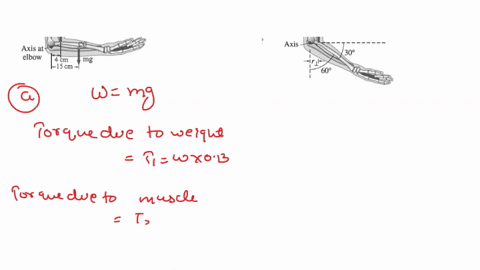 Axis at
elbow
4 cm
15 cm
mg
Axis
30°
r⊥
60°
a
ω = mg
Torque due to weight
= T₁ = ω × 0.13
Torque due to muscle
= T₂